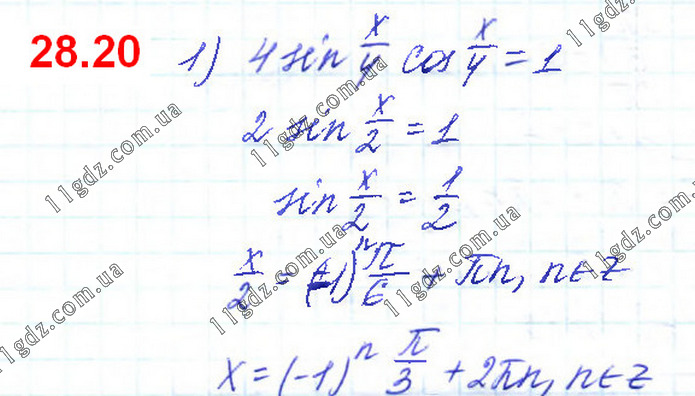 28.20 1) 4 sin x/4 cos x/4 = 1
2 sin x/2 = 1
sin x/2 = 1/2
x/2 = (-1)^n π/6 + πn, n∈Z
x = (-1)^n π/3 + 2πn, n∈Z
11gdz.com.ua
11gdz.com.ua
11gdz.com.ua
11gdz.com.ua
11gdz.com.ua
11gdz.com.ua
11gdz.com.ua